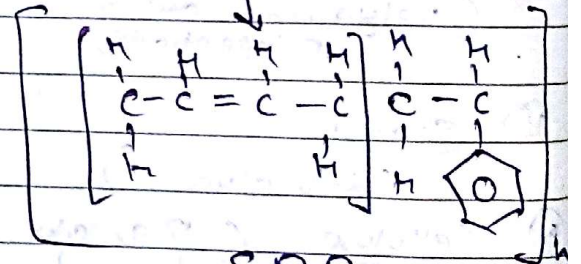 H H H H H H
C - C = C - C C - C
H H H
n